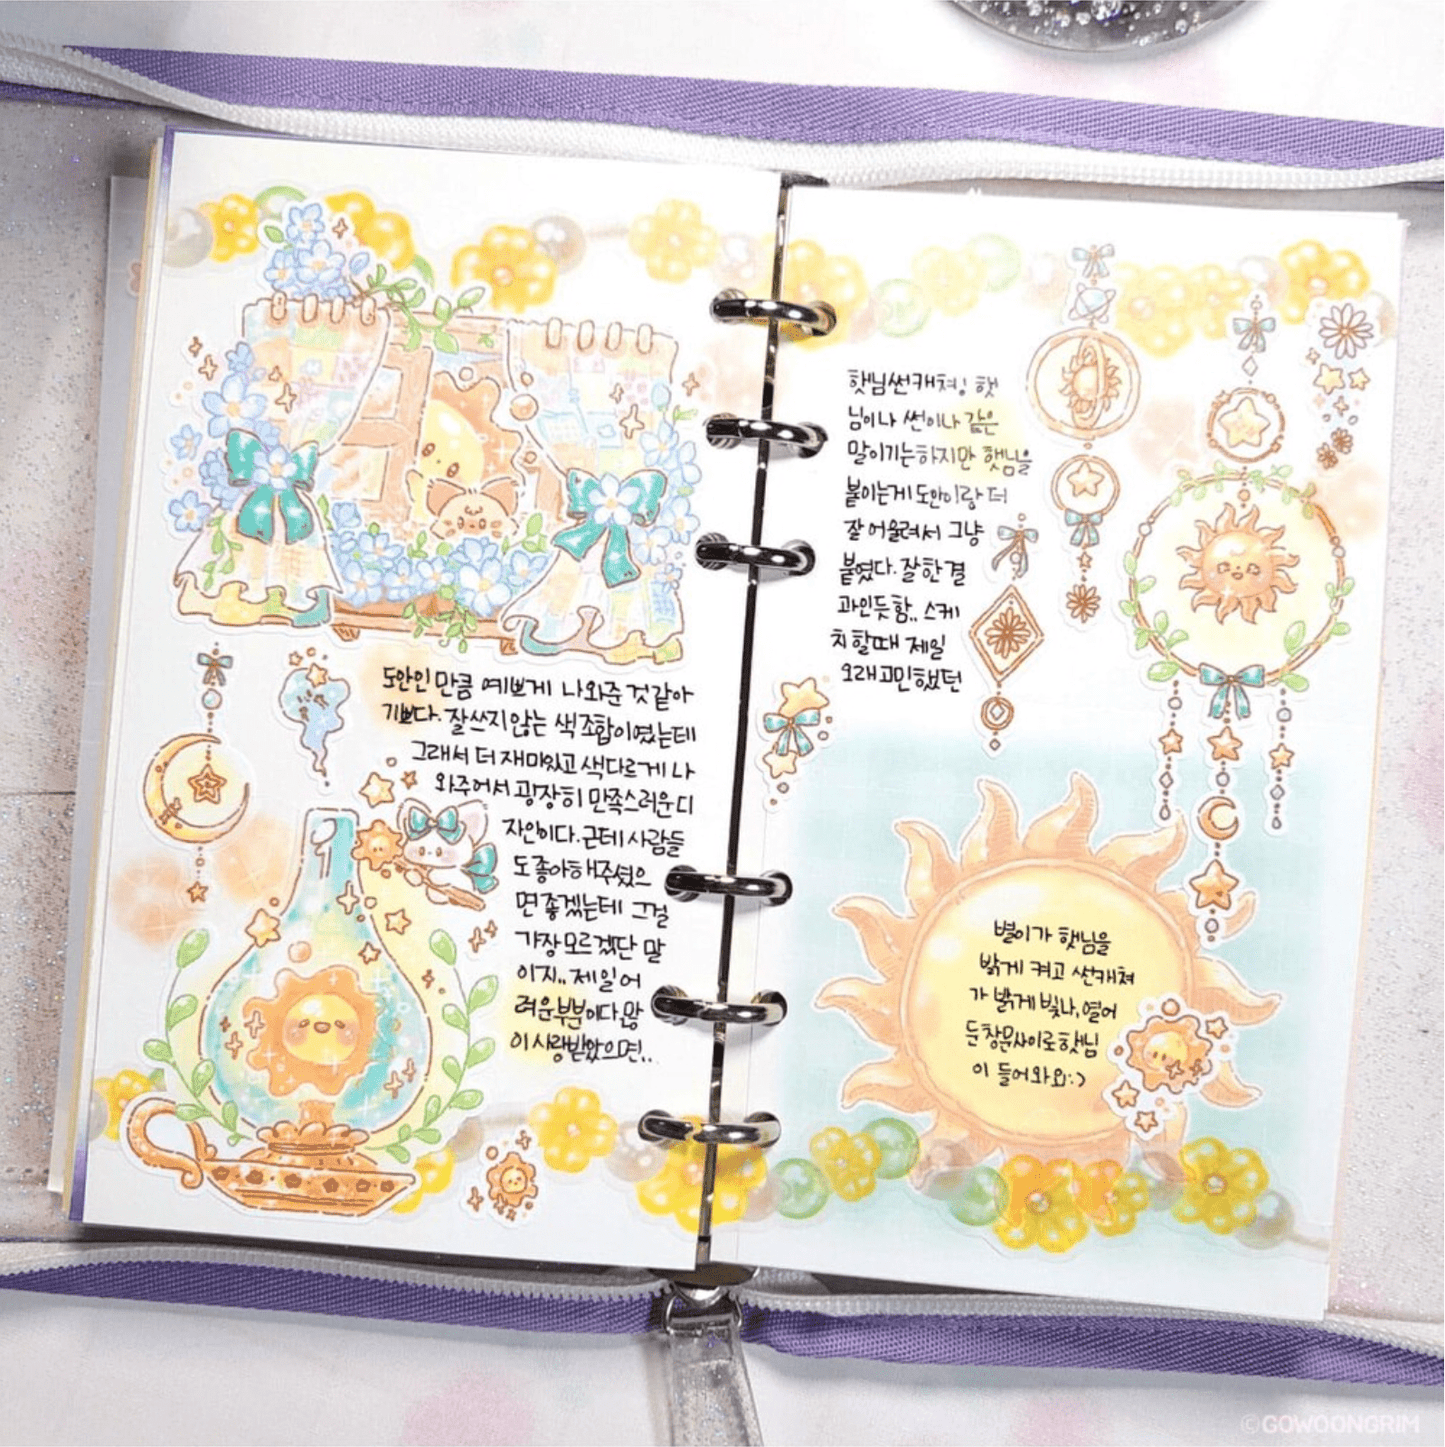 도안인 만큼 예쁘게 나와준 것 같아
기쁘다. 잘쓰지 않는 색조합이였는데
그래서 더 재미있고 색다르게 나
와주어서 굉장히 만족스러운 디
자인이다. 근데 사람들
도 좋아해주셨으
면 좋겠는데 그걸
가장 모르겠단 말
이지.. 제일 어
려운 부분이다. 많
이 사랑받았으면..
햇님썬캐쳐! 햇
님이나 썬이나 같은
말이기는하지만 햇님을
붙이는게 도안이랑 더
잘 어울려서 그냥
붙였다. 잘한 결
과인듯함.. 스케
치 할때 제일
오래 고민했던
별이가 햇님을
밝게 켜고 썬캐쳐
가 밝게 빛나, 열어
둔 창문사이로 햇님
이 들어와요:)
©GOWOONGRIM